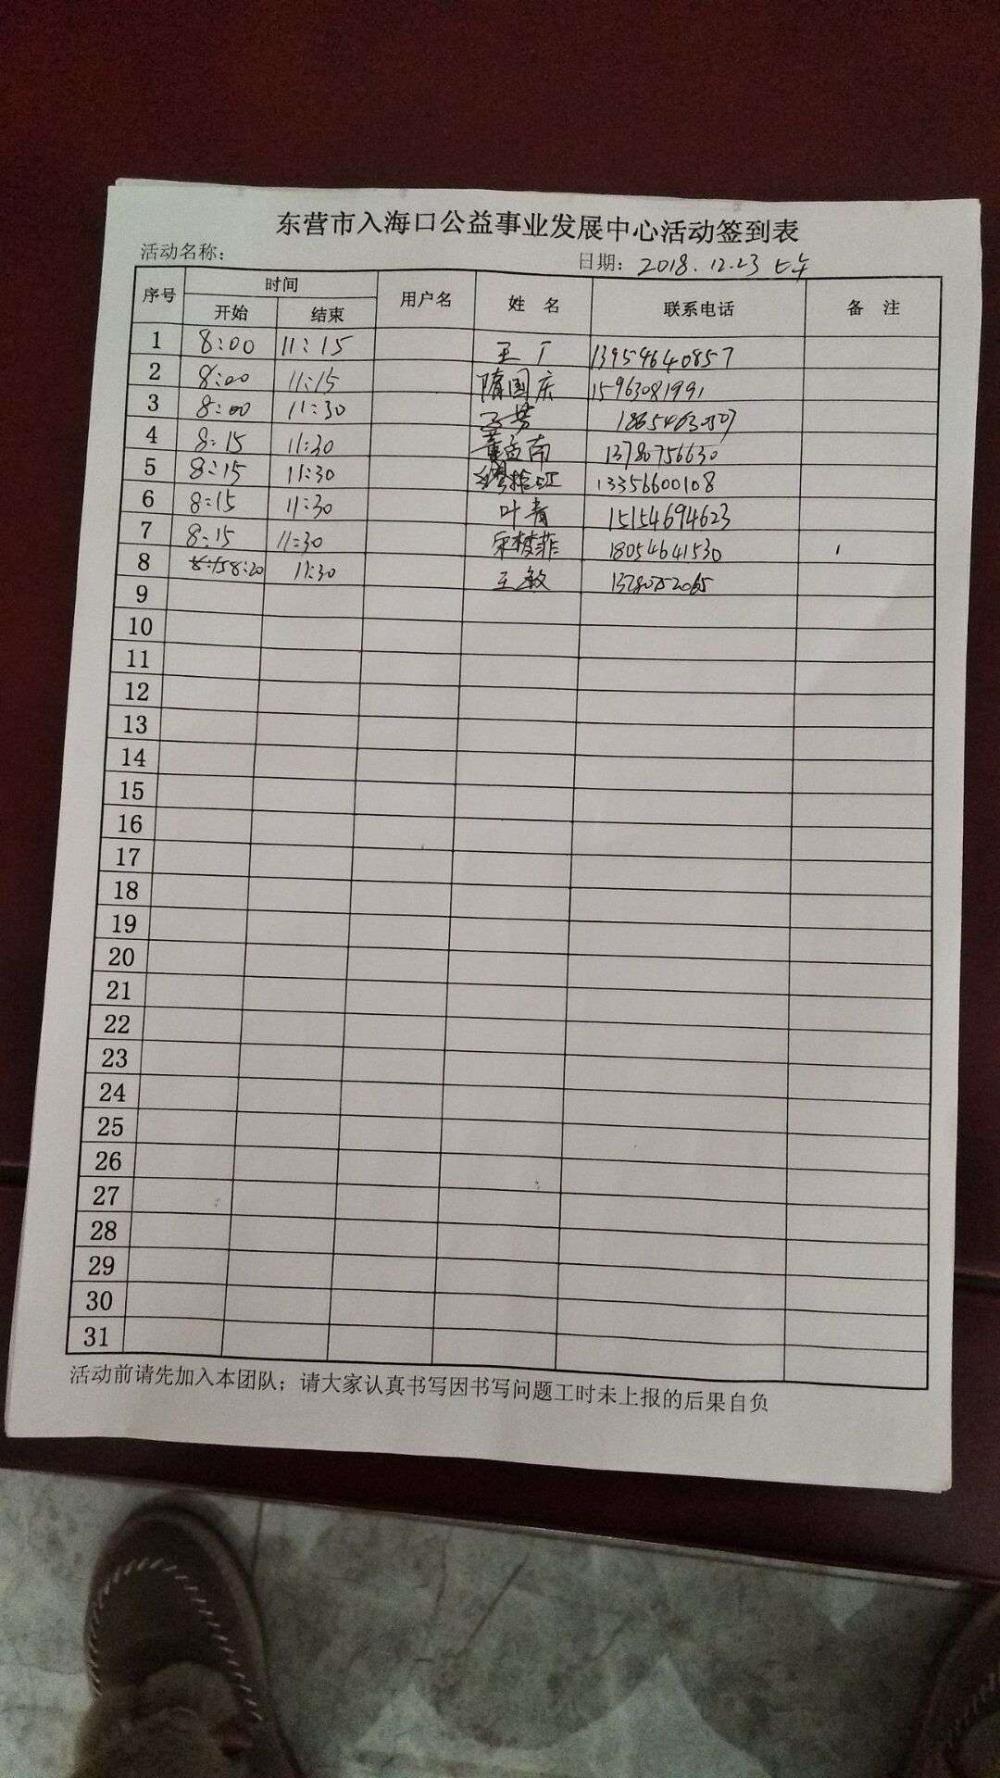 东营市入海口公益事业发展中心活动签到表
活动名称： 日期：2018.12.23 上午
序号 时间 用户名 姓 名 联系电话 备 注
开始 结束
1 8:00 11:15 王丁 13954640857
2 8:00 11:15 隋国庆 15963081991
3 8:00 11:30
4 8:15 11:30 董孟南 13780756630
5 8:15 11:30 13356600108
6 8:15 11:30 叶青 15154694623
7 8:15 11:30 宋梦菲 18054641530
8 8:20 11:30 王敏
9
10
11
12
13
14
15
16
17
18
19
20
21
22
23
24
25
26
27
28
29
30
31
活动前请先加入本团队；请大家认真书写因书写问题工时未上报的后果自负